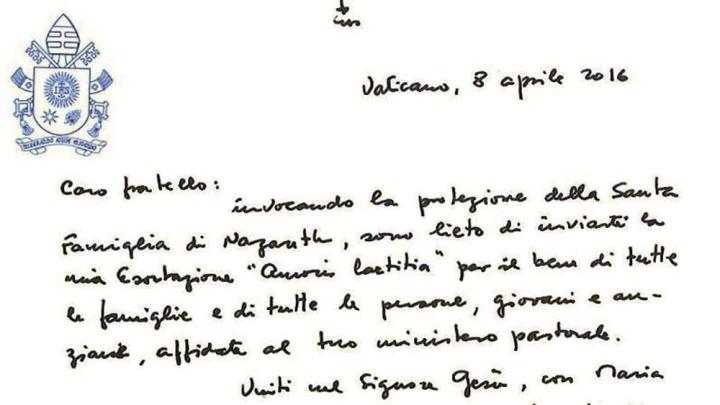 IHS
MISERANDO ATQUE ELIGENDO
Vaticano, 8 aprile 2016
Caro fratello:
invocando la protezione della Santa
Famiglia di Nazareth, sono lieto di inviarti la
mia Esortazione "Amoris laetitia" per il bene di tutte
le famiglie e di tutte le persone, giovani e an-
ziane, affidate al tuo ministero pastorale.
Uniti nel Signore Gesù, con Maria